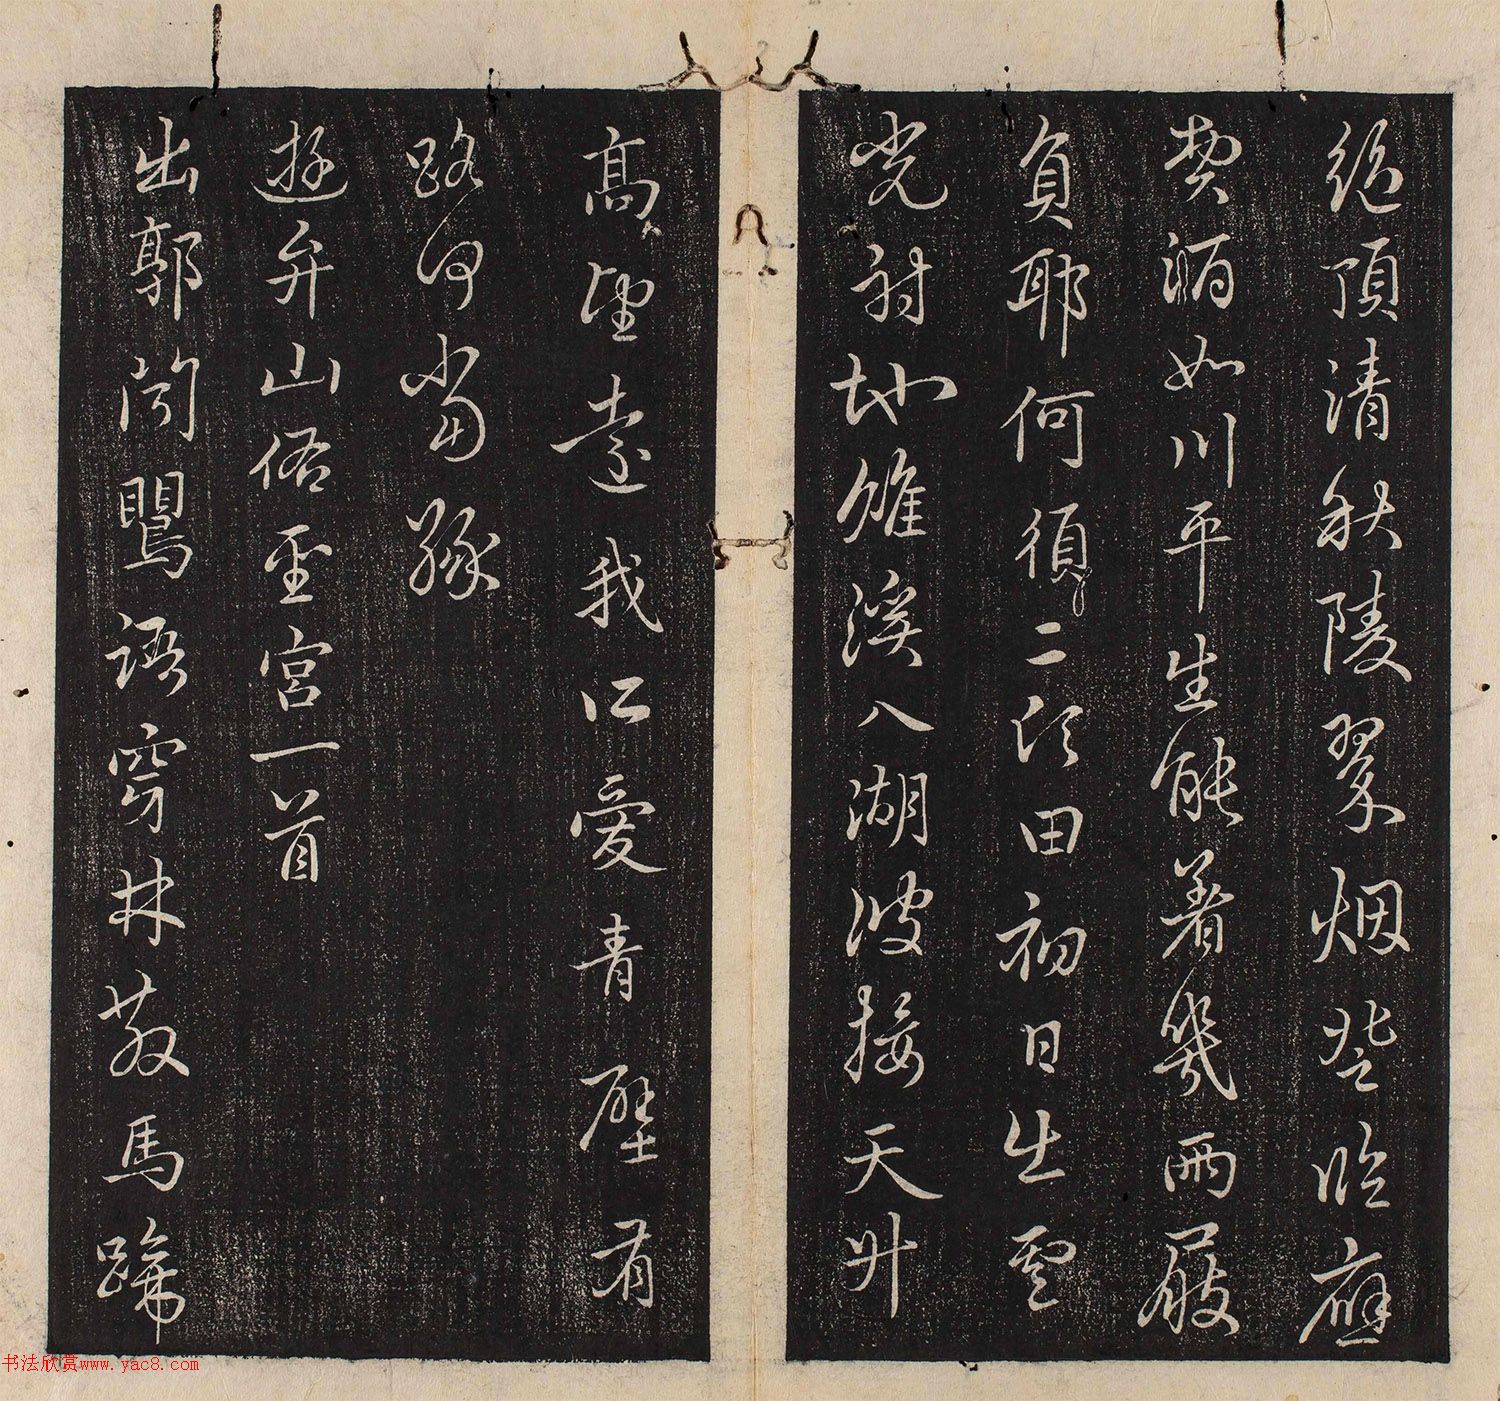 絕頂清秋陵翠烟登臨應
費酒如川平生能着幾兩屐
負郭何須二頃田初日生雲
光射地溪入湖波接天升
高望遠我所愛青壁有
路何當緣
遊弁山佑聖宮一首
出郭聞鸎語穿林散馬蹄
书法欣赏www.yac8.com